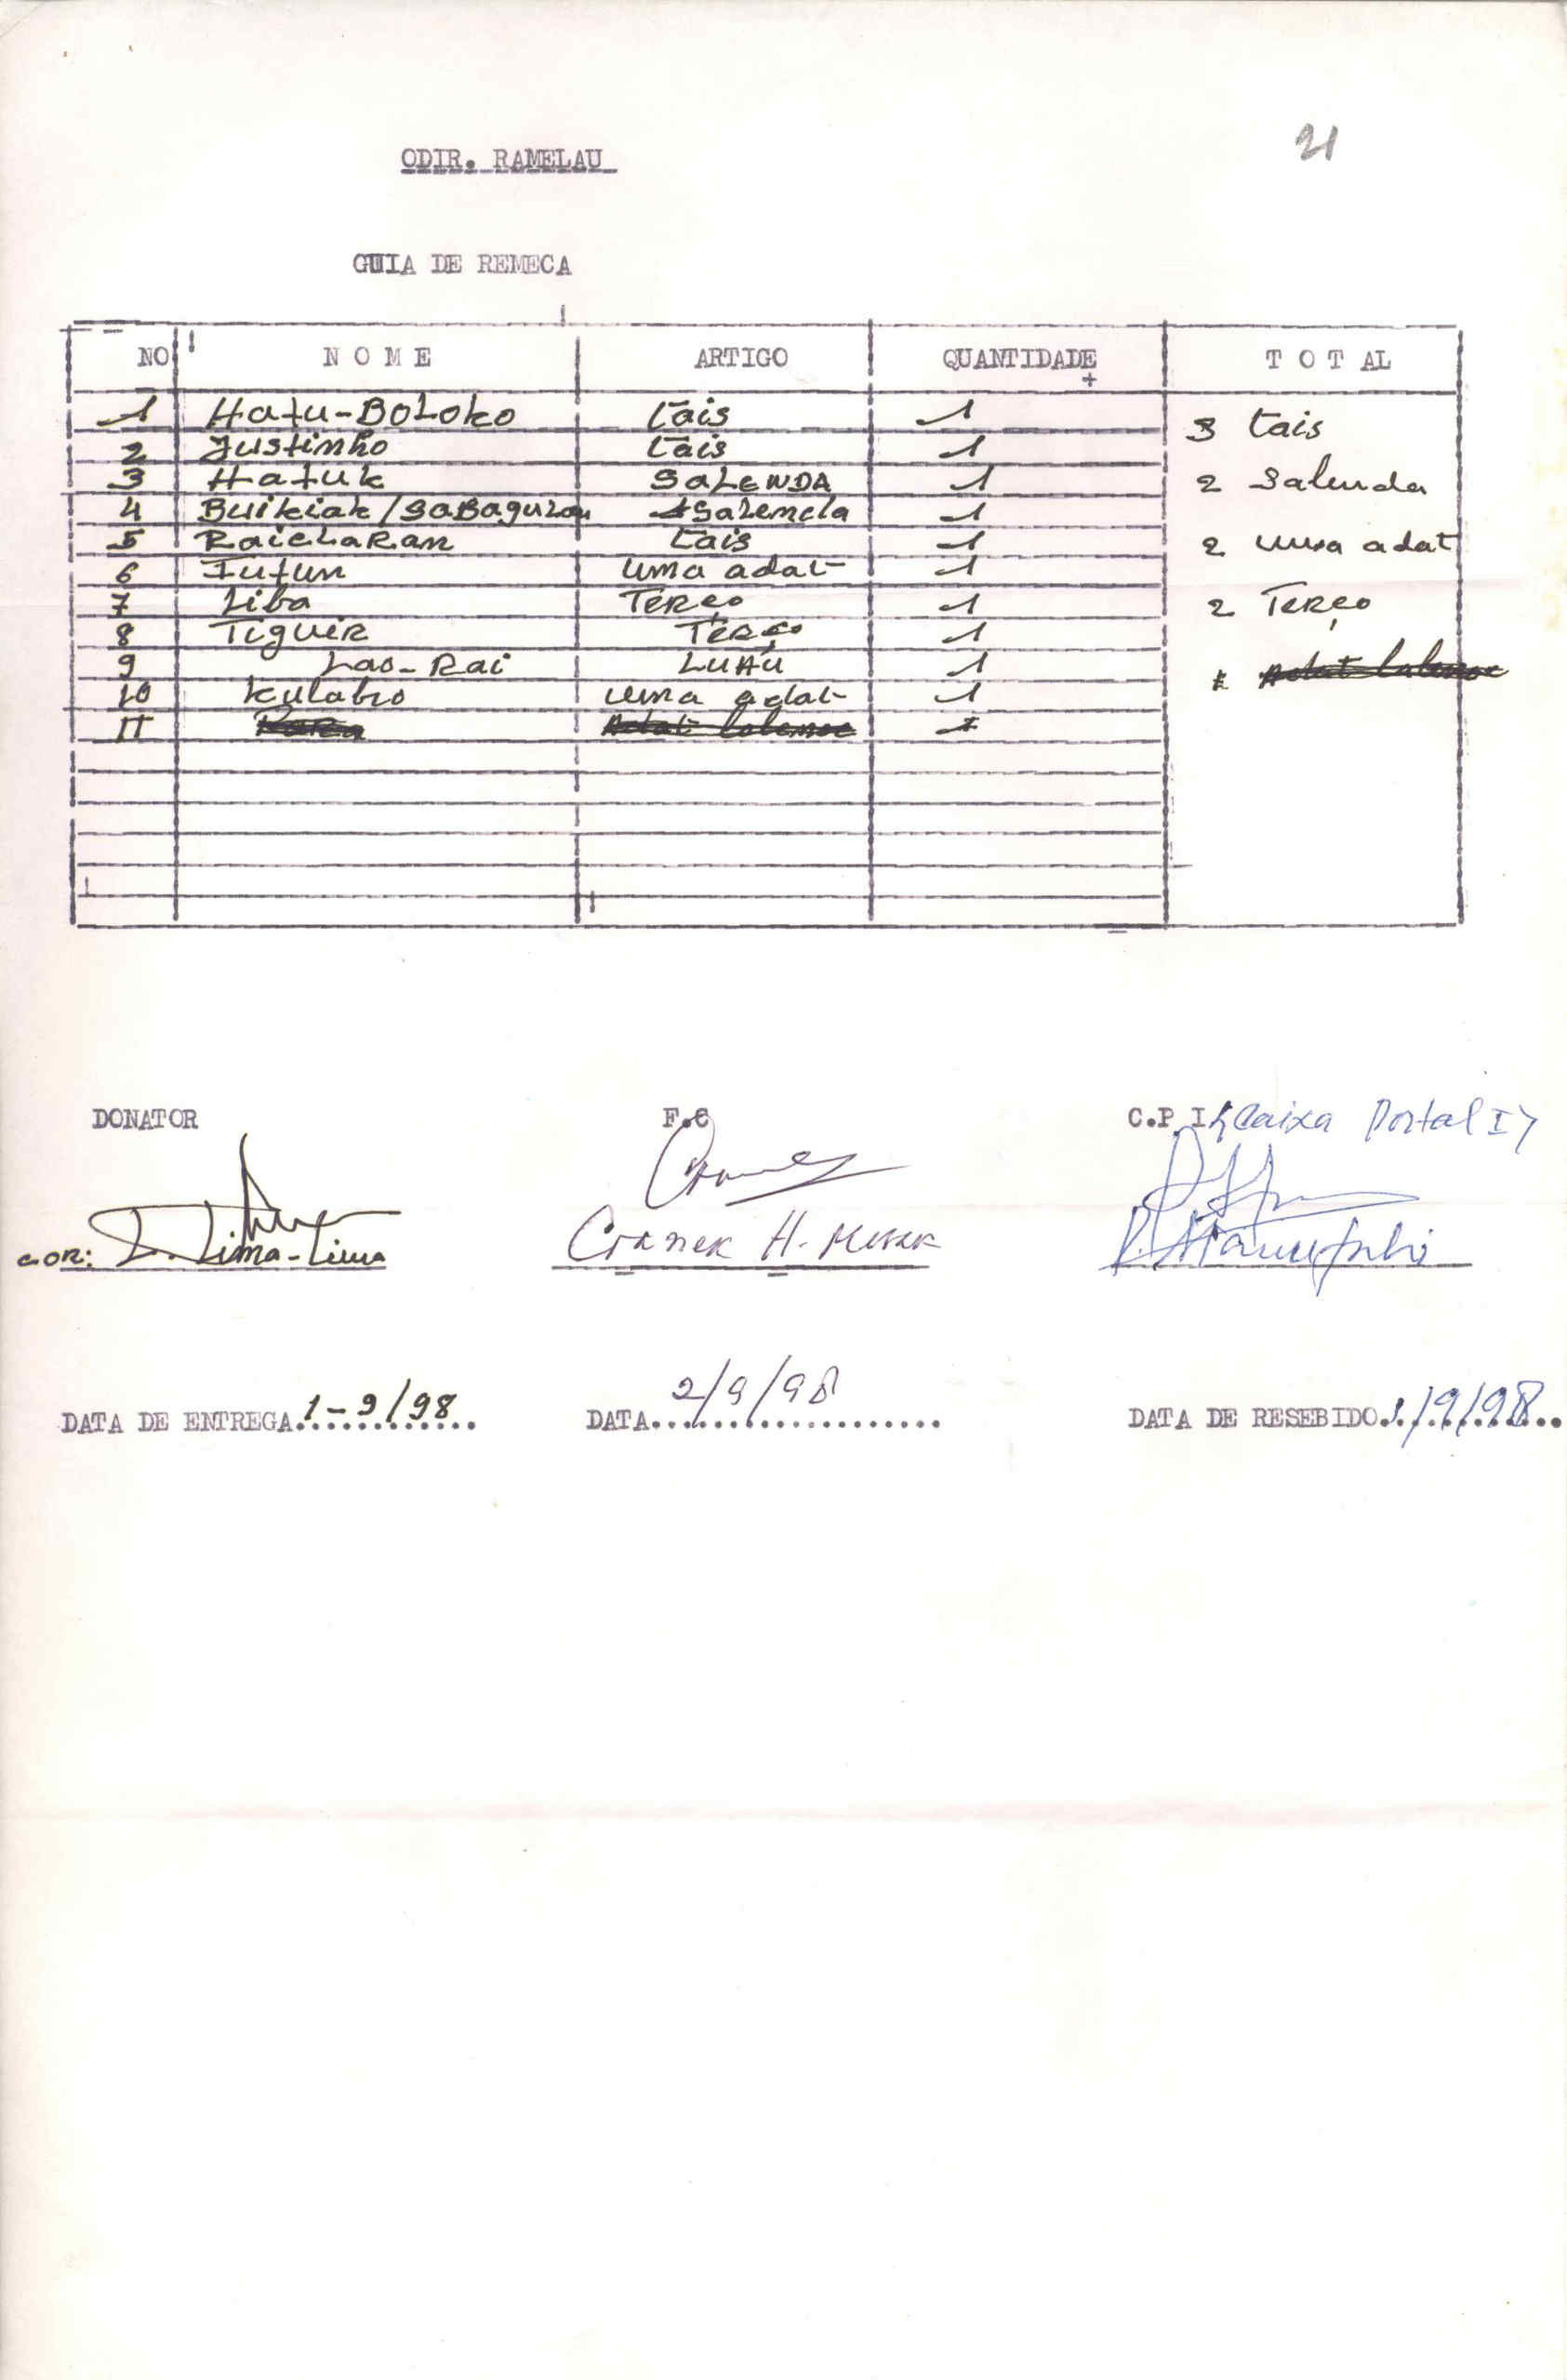 21
ODIR. RAMELAU
GUIA DE REMECA
NO NOME ARTIGO QUANTIDADE TOTAL
1 Hatu-Boloko tais 1 3 tais
2 Justinho tais 1
3 Hatuk SALENDA 1 2 Salenda
4 Buikiak / Salenda 1
5 tais 1 2 uma adat
6 uma adat 1
7 Liba Terço 1 2 Terço
8 Tiguir Terço 1
9 Lao-Rai 1
10 Kulabo uma adat 1
11
DONATOR F.C C.P.I (Caixa Postal I)
COR: L. Lima-Lima H.
DATA DE ENTREGA 1-9/98 DATA 2/9/98 DATA DE RESEBIDO /9/98